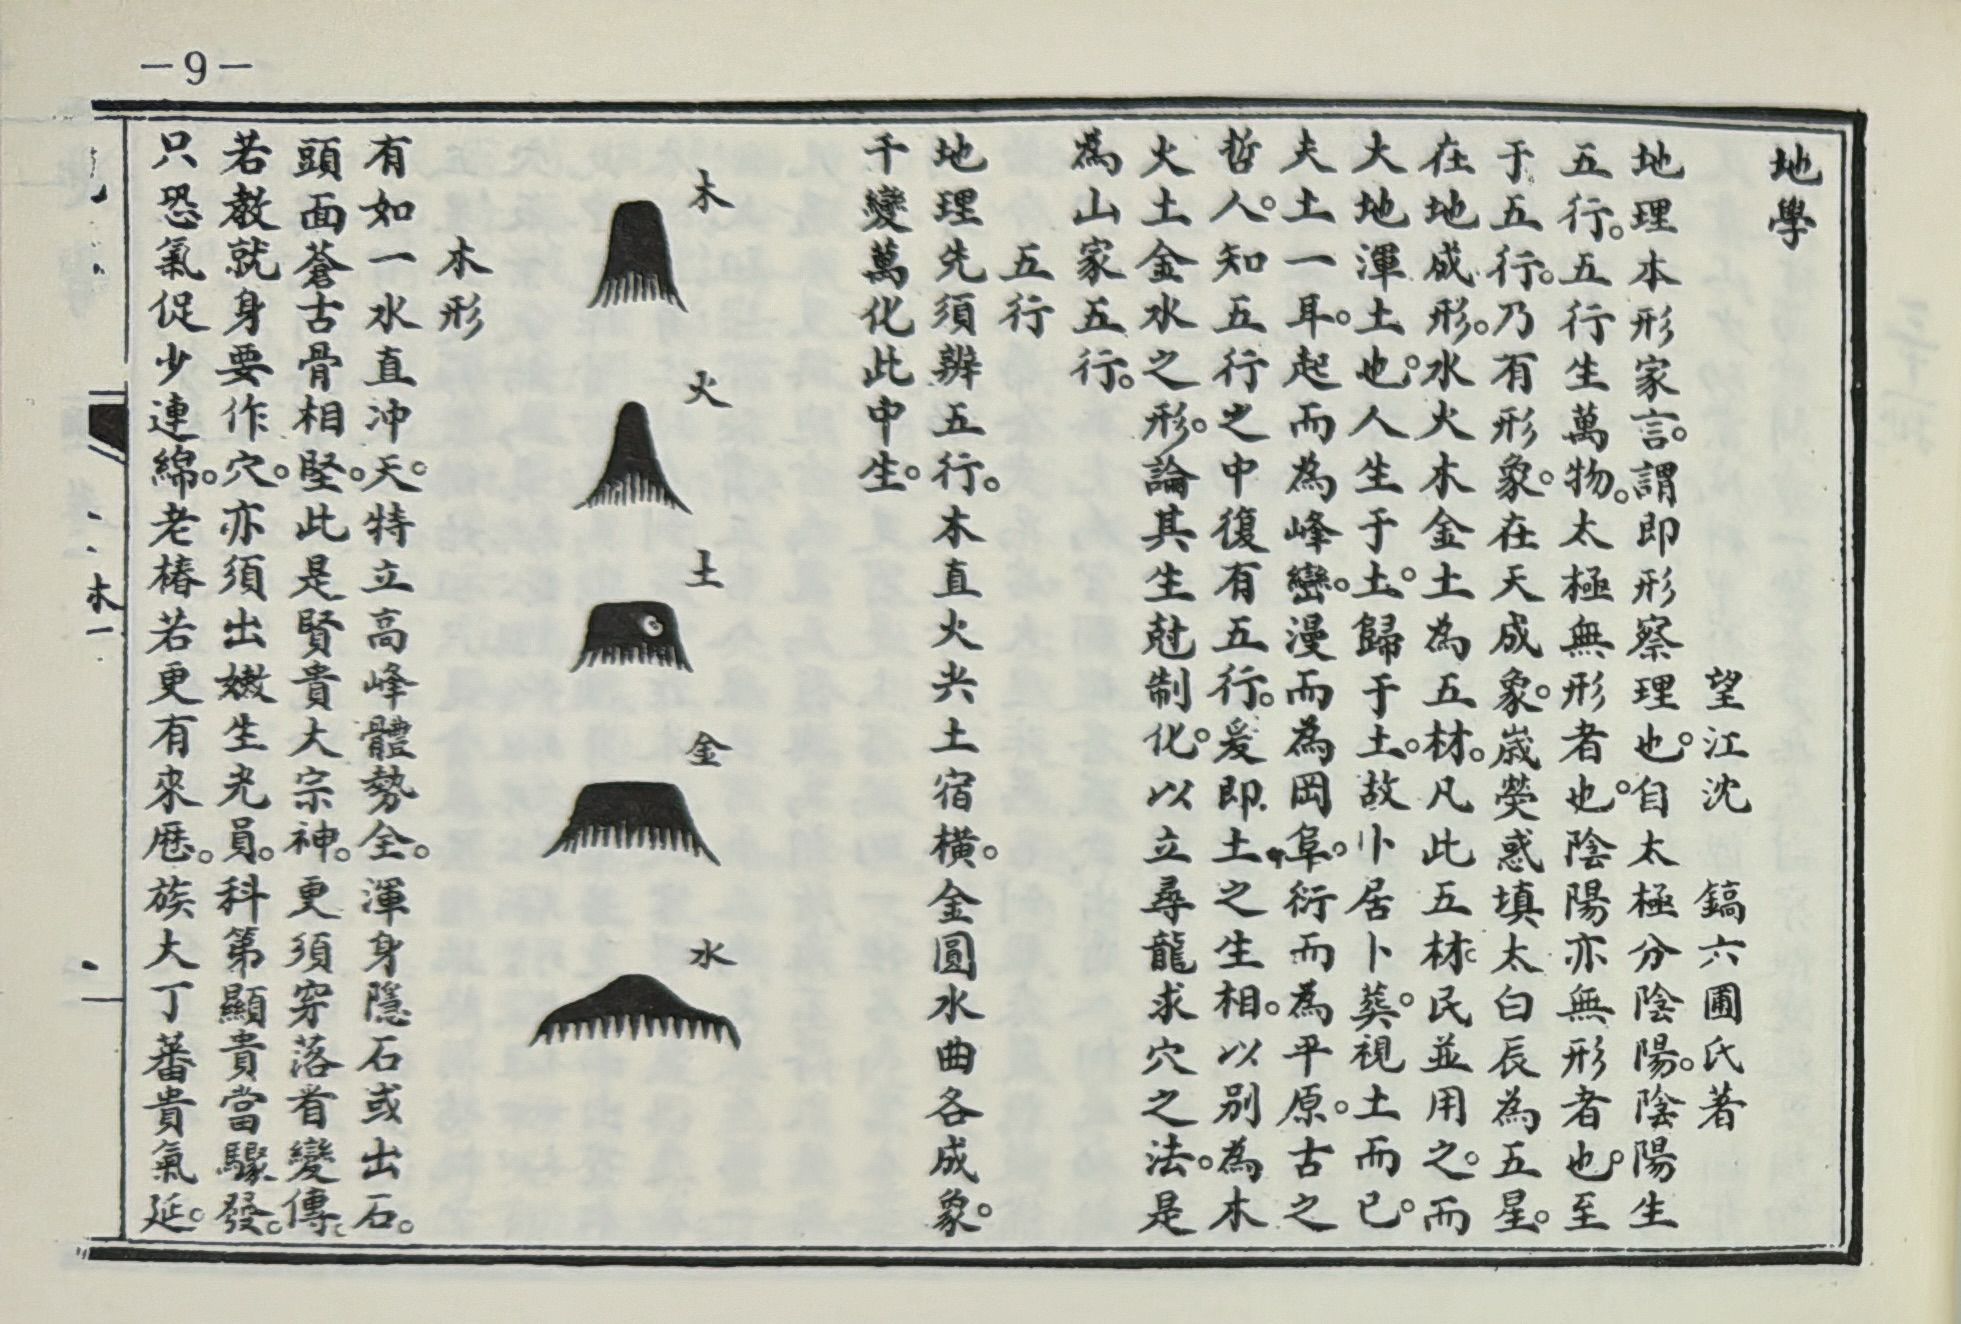 －9－
地學
望江沈　鎬六圃氏著
地理本形家言。謂即形察理也。自太極分陰陽。陰陽生
五行。五行生萬物。太極無形者也。陰陽亦無形者也。至
于五行。乃有形象。在天成象。歲熒惑填太白辰為五星。
在地成形。水火木金土為五材。凡此五材民並用之。而
大地渾土也。人生于土。歸于土。故卜居卜葬。視土而已。
夫土一耳。起而為峰巒。漫而為岡阜。衍而為平原。古之
哲人。知五行之中復有五行。爰即土之生相。以別為木
火土金水之形。論其生尅制化。以立尋龍求穴之法。是
為山家五行。
五行
地理先須辨五行。木直火尖土宿橫。金圓水曲各成象。
千變萬化此中生。
木
火
土
金
水
木形
有如一水直冲天。特立高峰體勢全。渾身隱石或出石。
頭面蒼古骨相堅。此是賢貴大宗神。更須穿落省變傳。
若教就身要作穴。亦須出嫩生光員。科第顯貴當驟發。
只恐氣促少連綿。老椿若更有來歷。族大丁蕃貴氣延。
木一